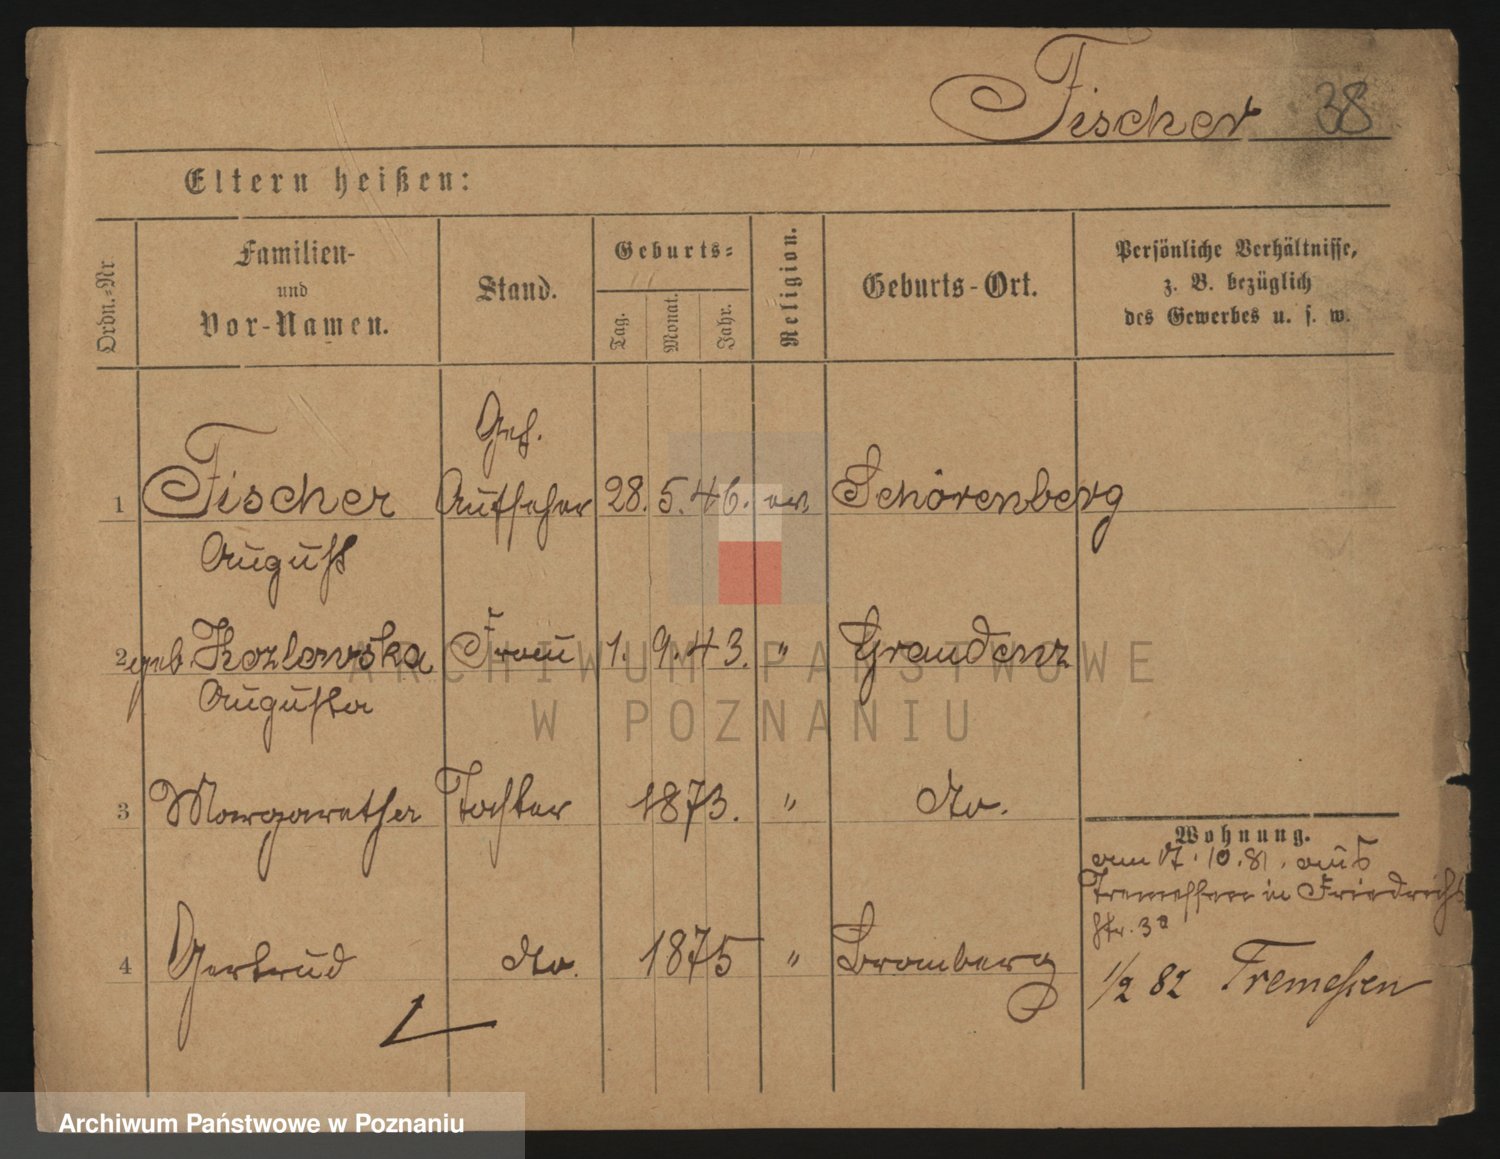 Fischer 38
Eltern heißen:
Ordn.-Nr
Familien-
und
Vor-Namen.
Stand.
Geburts-
Tag.
Monat.
Jahr.
Religion.
Geburts-Ort.
Persönliche Verhältnisse,
z. B. bezüglich
des Gewerbes u. s. w.
Gef.
1 Fischer Aufseher 28. 5. 46. ev. Schörenberg
August
2 geb Kozlowska Frau 1. 9. 43. " Graudenz
Augusta
3 Margaretha Tochter 1873. " do.
Wohnung.
am 17. 10. 81. aus
Tremessen in Friedrichs
str. 30
4 Gertrud do. 1875 " Bromberg
1/2 82 Tremeßen
ARCHIWUM PAŃSTWOWE
W POZNANIU
Archiwum Państwowe w Poznaniu